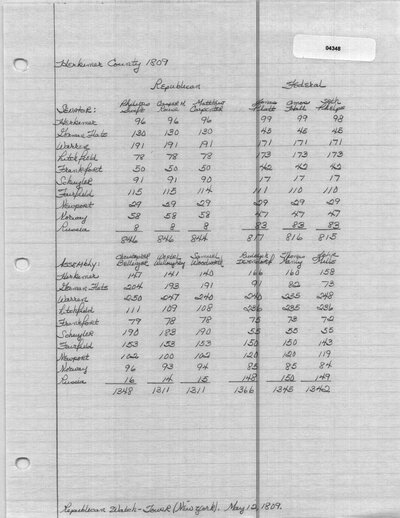 04348
Herkimer County 1809
Republican Federal
Philetus Caspar M Matthew Jonas Amos Seth
Senator: Swift Rouse Carpenter Platt Hall Phelps
Herkimer 96 96 96 99 99 98
German Flats 130 130 130 45 45 45
Warren 191 191 191 171 171 171
Litchfield 78 78 78 173 173 173
Frankfort 50 50 50 42 42 42
Schuyler 91 91 90 17 17 17
Fairfield 115 115 114 111 110 110
Newport 29 29 29 29 29 29
Norway 58 58 58 47 47 47
Russia 8 8 8 83 83 83
846 846 844 817 816 815
Christopher Westel Samuel Rudolph Thomas
Assembly: Bellinger Willoughby Woodworth Manly
Herkimer 147 141 140 166 160 158
German Flats 204 193 191 91 82 73
Warren 250 247 240 240 235 248
Litchfield 111 109 108 236 235 236
Frankfort 79 78 78 75 73 72
Schuyler 190 183 190 55 55 55
Fairfield 153 153 153 150 150 143
Newport 102 100 102 120 120 119
Norway 96 93 94 85 85 84
Russia 16 14 15 148 150 149
1348 1311 1311 1366 1345 1342
Republican Watch-Tower (New York). May 12, 1809.